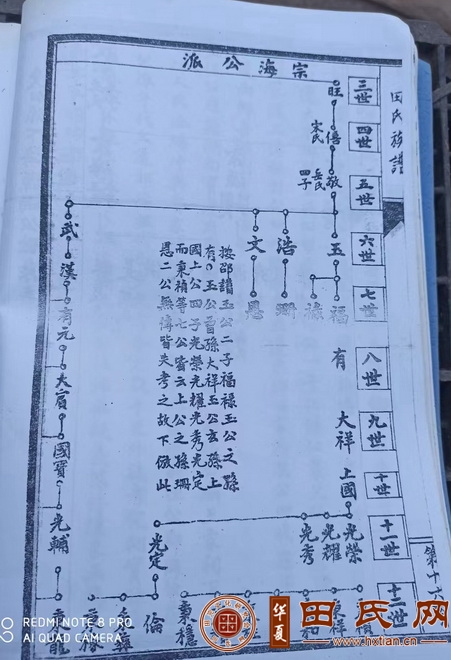 田氏族譜
宗海公派
三世
四世
五世
六世
七世
八世
九世
十世
十一世
十二世
旺
倍
宋氏
敬
岳氏
四子
玉
浩
文
武
福
祿
珊
恩
漢
有
有元
大祥
大賓
上國
國寳
光榮
光耀
光秀
光定
光輔
倫
秉穩
按邵譜玉公二子福祿玉公之孫
有○玉公曾孫大祥玉公玄孫上
國上公四子光榮光耀光秀光定
而秉禎等七公皆云上公之孫珊
恩二公無傳皆失考之故下倣此
第十六
REDMI NOTE 8 PRO
AI QUAD CAMERA
華夏
田氏网
www.hxtian.cn